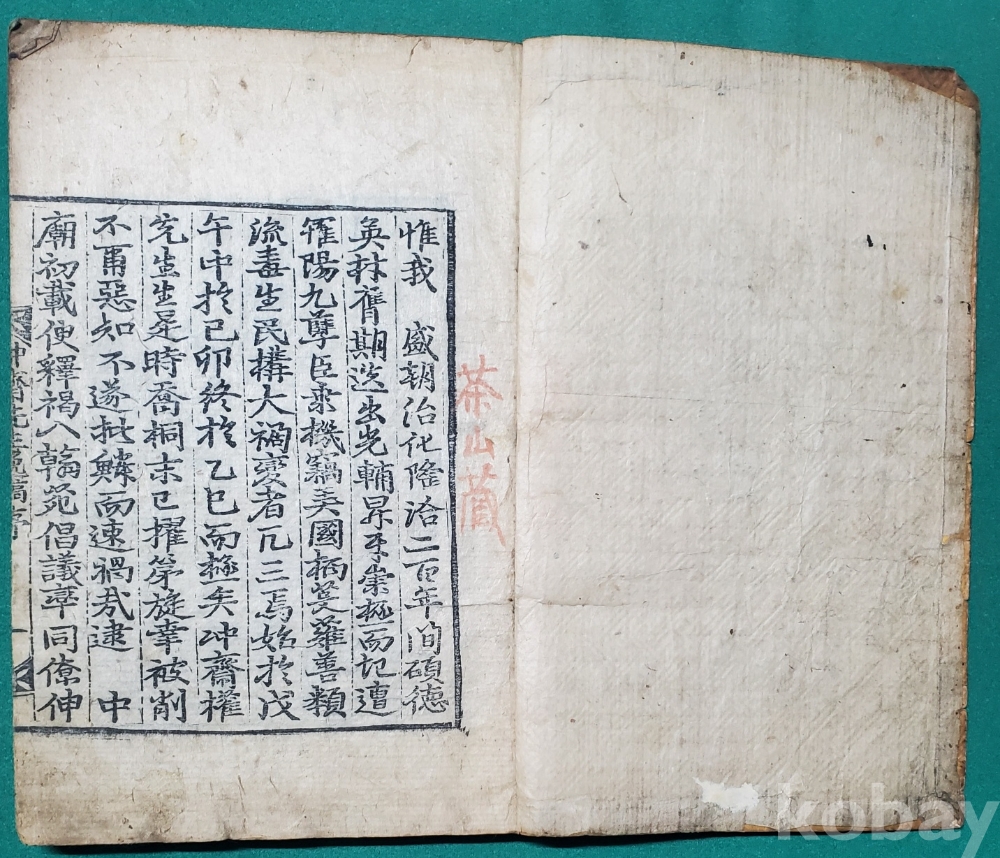 茶山藏
惟我 盛朝治化隆洽二百年間碩德
英林舊期迭出光輔昇平崇極而圮遭
罹陽九孽臣乘機竊弄國柄芟薙善類
流毒生民構大禍變者凡三焉始於戊
午中於己卯終於乙巳而極矣冲齋權
先生生是時喬桐末已擢第旋幸被削
不爾惡知不遂批鱗而速禍哉逮 中
廟初載便釋褐入翰苑倡議率同僚伸
冲齋先生逸稿序 一
kobay